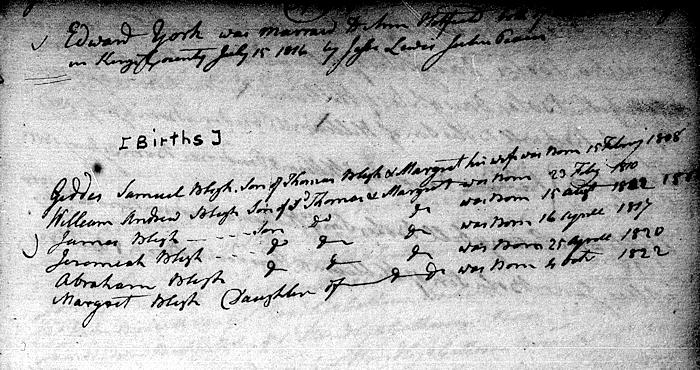 Edward York was married to Ann Both of
in Kings County July 15 1816 by John Lewis Justice Peace
[Births]
Geddes Samuel Bligh Son of Thomas Bligh & Margret his wife was Born 15 Febury 1808
William Andrew Bligh Son of Do Thomas & Margret was Born 23 Feby 1810
James Bligh Son do do was Born 15 august 1812
Jeromiah Bligh do do do was Born 16 aprill 1817
Abraham Bligh do do do was Born 25 aprill 1820
Margret Bligh Daughter of do do was Born 4 Octr 1822